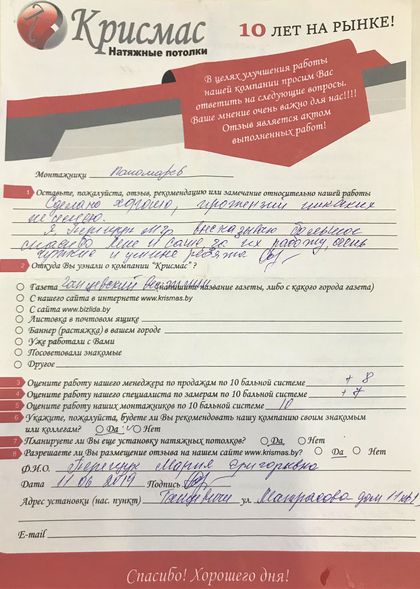 Крисмас
Натяжные потолки
10 ЛЕТ НА РЫНКЕ!
В целях улучшения работы
нашей компании просим Вас
ответить на следующие вопросы.
Ваше мнение очень важно для нас!!!!
Отзыв является актом
выполненных работ!
Монтажники Пономарёв
1 Оставьте, пожалуйста, отзыв, рекомендацию или замечание относительно нашей работы
Сделано хорошо, протензий никаких
не имею.
Я, высказываю большое
спасибо Лене и Саше за их работу, очень
и умные ребята
2 Откуда Вы узнали о компании "Крисмас"?
Газета (напишите название газеты, либо с какого города газета)
С нашего сайта в интернете www.krismas.by
С сайта www.bizlida.by
Листовка в почтовом ящике
Баннер (растяжка) в вашем городе
Уже работали с Вами
Посоветовали знакомые
Другое
3 Оцените работу нашего менеджера по продажам по 10 бальной системе + 8
4 Оцените работу нашего специалиста по замерам по 10 бальной системе + 7
5 Оцените работу наших монтажников по 10 бальной системе 10
6 Укажите, пожалуйста, будете ли Вы рекомендовать нашу компанию своим знакомым
или коллегам? Да Нет
7 Планируете ли Вы еще установку натяжных потолков? Да Нет
8 Разрешаете ли Вы размещение отзыва на нашем сайте www.krismas.by? Да Нет
Ф.И.О. Мария Григорьевна
Дата 11 06 2019 Подпись
Адрес установки (нас. пункт) Ганцевичи ул. дом
E-mail
Спасибо! Хорошего дня!